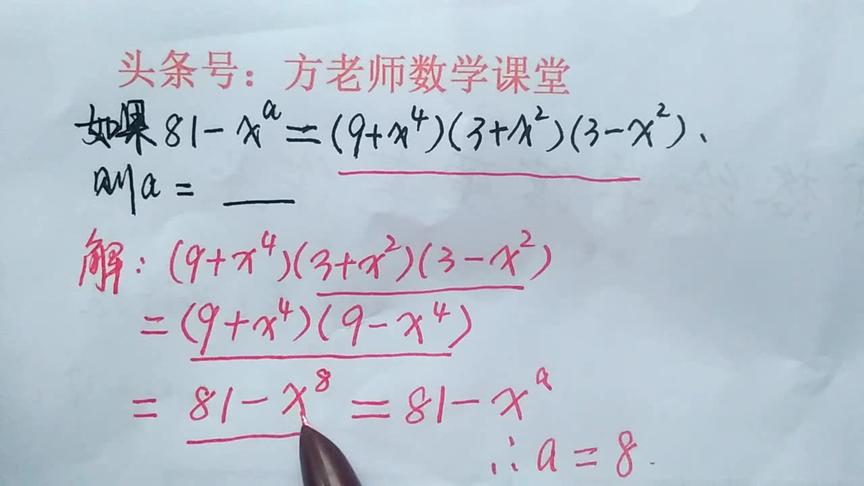 头条号：方老师数学课堂
如果 81-xᵃ=(9+x⁴)(3+x²)(3-x²)、
则a= ___
解：(9+x⁴)(3+x²)(3-x²)
=(9+x⁴)(9-x⁴)
= 81-x⁸ = 81-xᵃ
∴a=8.